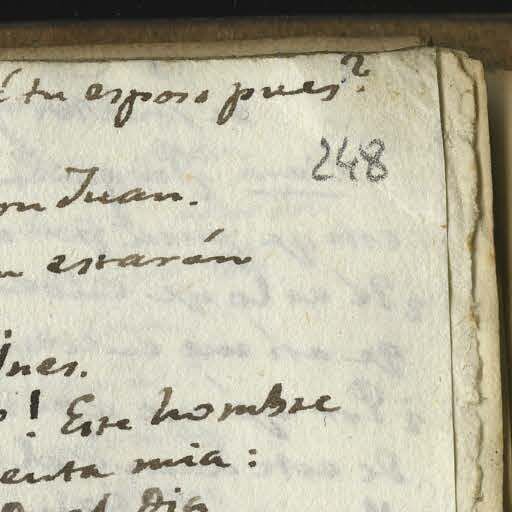 É tu esposo pues?
248
on Juan.
n estarán
Ines.
o! Este hombre
enta mia:
dia